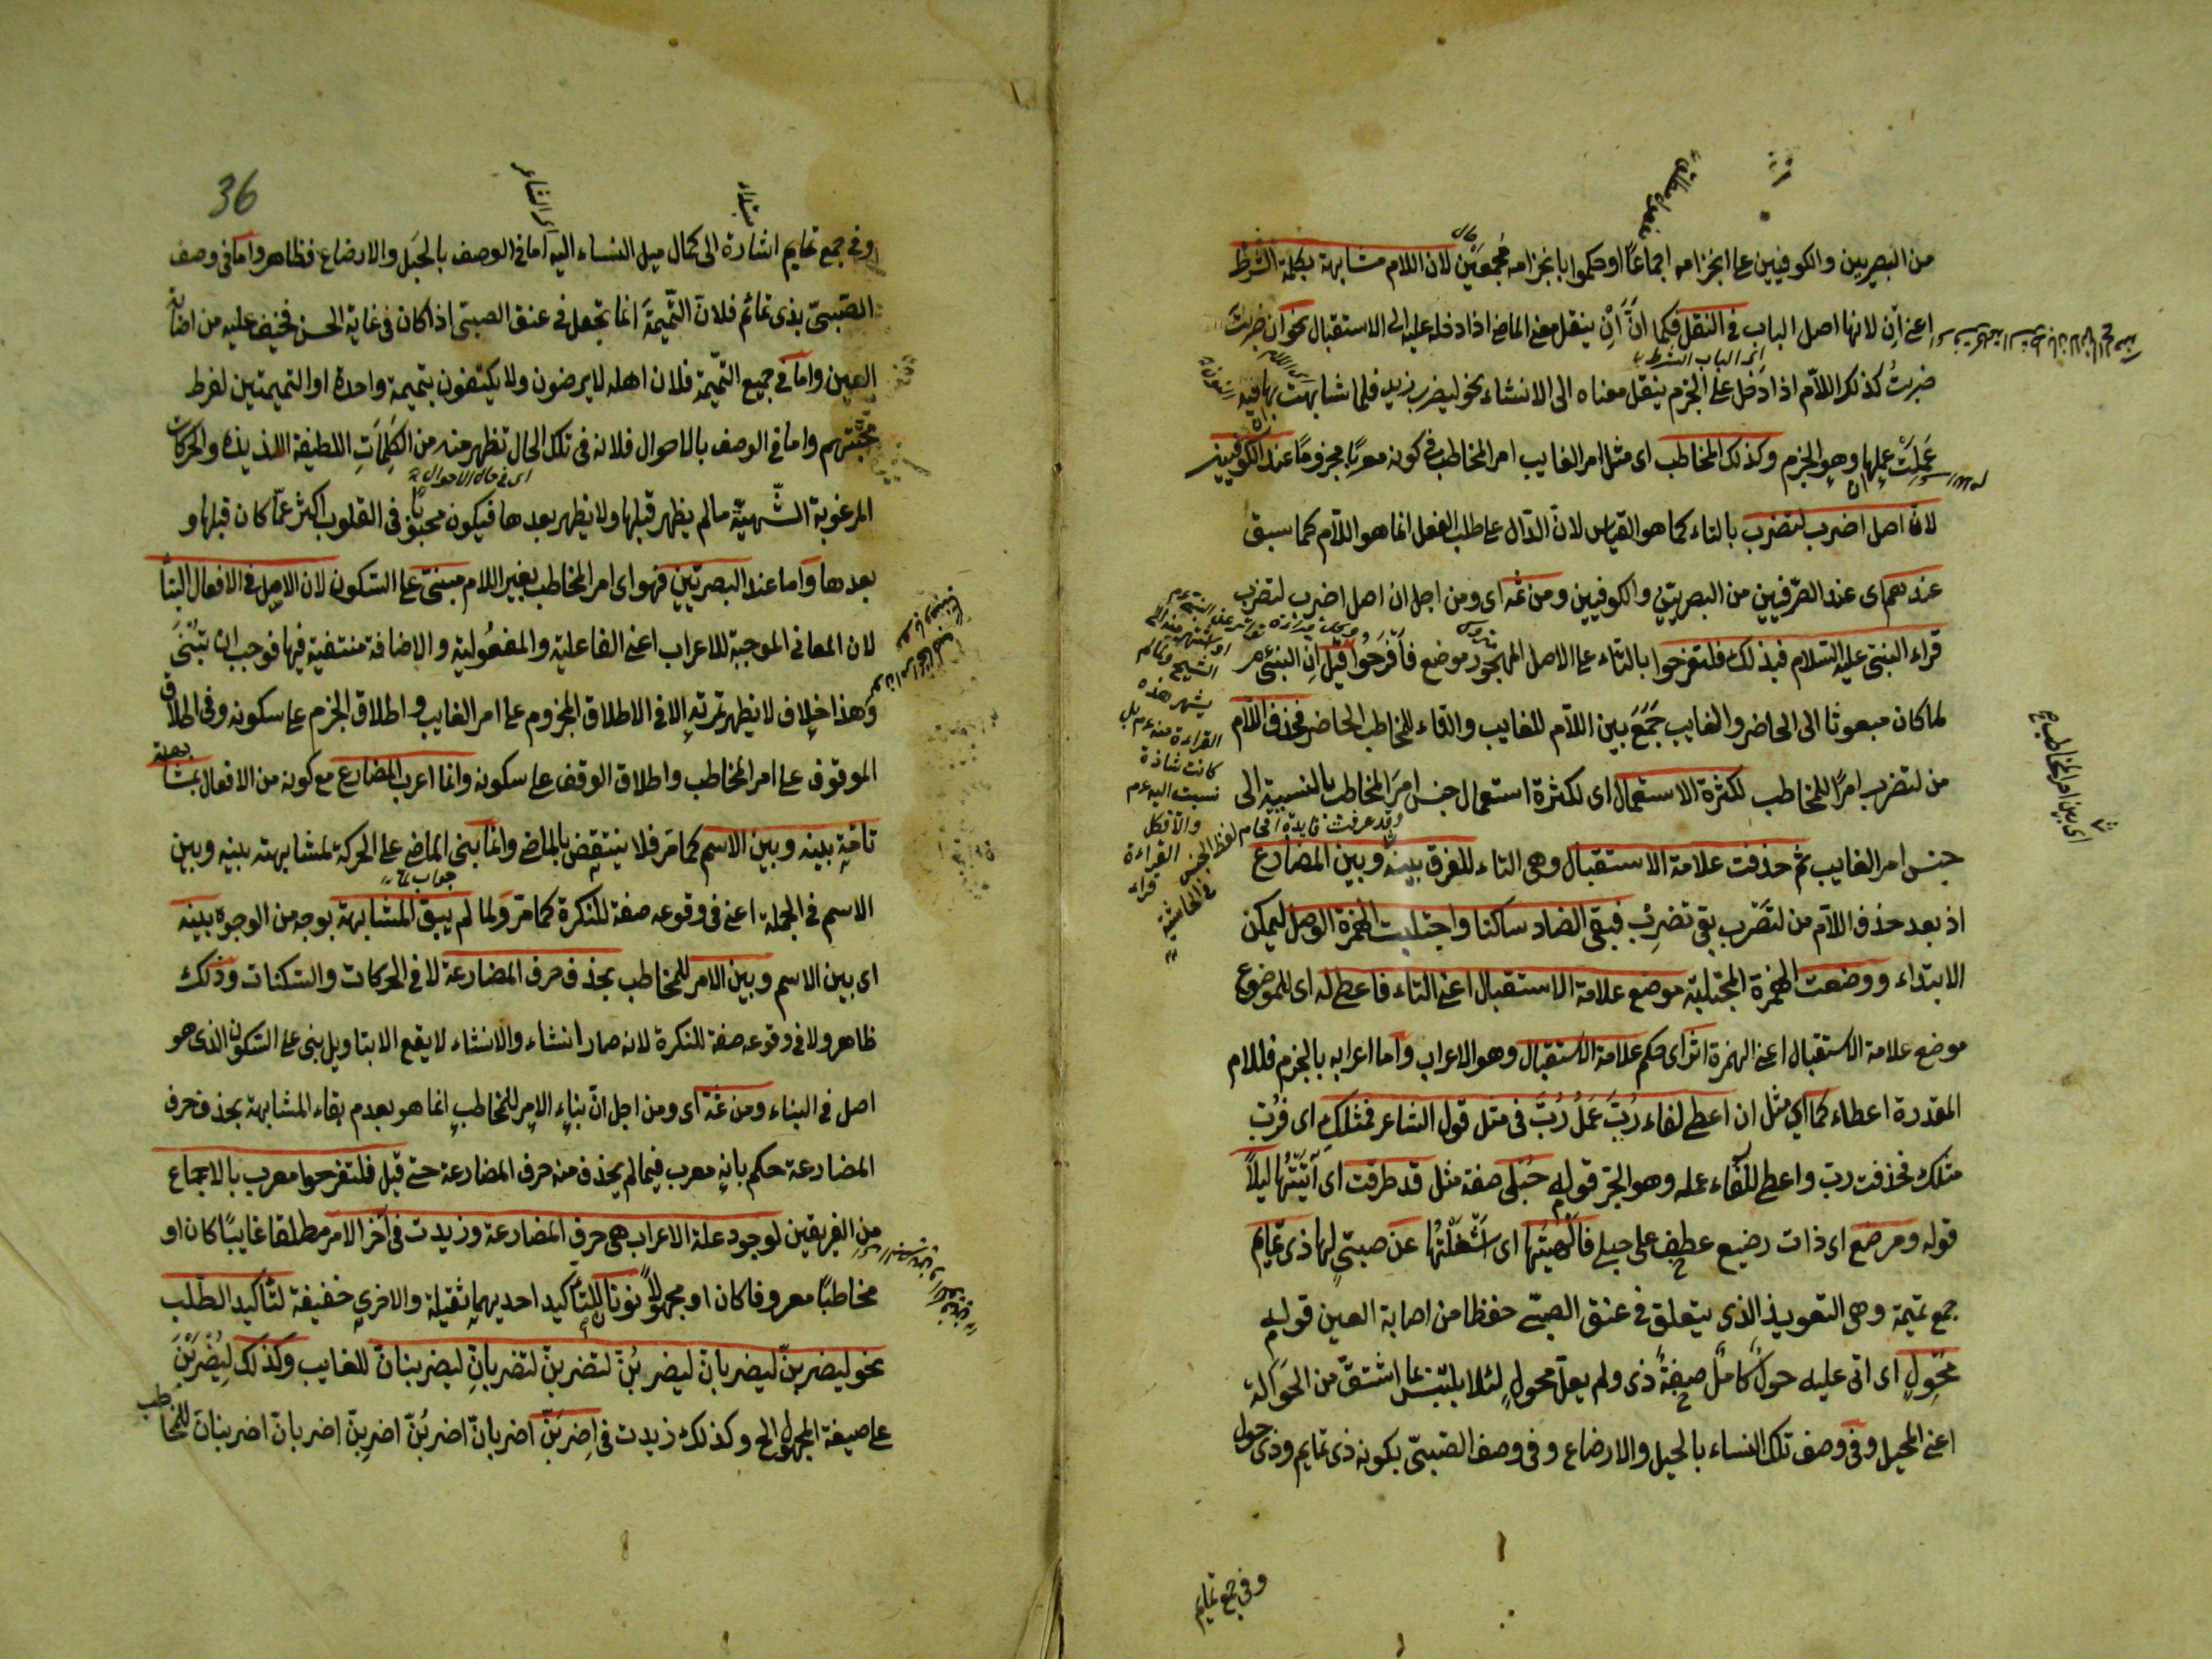 من البصريين والكوفيين على انجزامه اجماعًا او حكموا بانجزامه مُجمعين لان اللام مشابهة بكلمة الشرط
اعنى اِن لانها اصل الباب فى النقل فكما انّ اِنْ ينقل معنى الماضى اذا دخله عليه الى الاستقبال نحو ان ضربتَ
ضربتُ كذلك اللاّم اذا دخل على الجزم ينقل معناه الى الانشاء نحو ليضرب زيد فلما شابهت بها فيه
عَمِلَتْ عملها وهو الجزم وكذلك المخاطب اى مثل امر الغايب امر المخاطب فى كونه معربا مجزومًا عند الكوفيين
لانّ اصل اضرب لتضرب بالتاء كما هو القياس لانّ الدّال على طلب الفعل انما هو اللاّم كما سبق
عندهم اى عند الصّرفيين من البصريين والكوفيين ومن ثمّه اى ومن اجل ان اصل اضرب لتضرب
قراء النبىّ عليه السّلام فبذلك فلتفرحوا بالتاء على الاصل المهجور موضع فَافرَحُوا قيل اِن النبىّ
لما كان مبعوثا الى الحاضر والغايب جَمَعَ بين اللاّم للغايب والتاء للمخاطب الحاضر فحذف اللاّم
من لتضرب امرًا للمخاطب لكثرة الاستعمال اى لكثرة استعمال جنس امرَ المخاطب بالنسبة الى
جنس امر الغايب ثم حذفت علامة الاستقبال وهى التاء للفرق بينه وبين المضارع
اذ بعد حذف اللاّم من لتضرب بقى تضرِب فبقى الضاد ساكنا واجتلبت الهمزة الوصل ليمكن
الابتداء ووضعت الهمزة المجتلبة موضع علامة الاستقبال اعنى التاء فاعطى له اى للموضوع
موضع علامة الاستقبال اعنى الهمزة اثر اى حكم علامة الاستقبال وهو الاعراب واما اعرابه بالجزم فللام
المقدرة اعطاء كما اى مثل ان اعطى لفاء رُبَّ عَمَلُ رُبَّ فى مثل قول الشاعر فمثلكِ اى فرُبّ
مثلك فحذفت ربّ واعطى للفاء عمله وهو الجرّ قوله حُبلى صفة مثل قد طرقت اى اَتَيْتُهَا ليلاً
قوله ومرضع اى ذات رضيع عطف على حبلى فالهيتُها اى اَشْغَلْتُها عن صبىّ لها ذى تمايم
جمع تميمة وهى التعويذ الذى يتعلق فى عنق الصبىّ حفظا من اصابة العين قوله
مُحْوِلٍ اى اتى عليه حولٌ كاملٌ صفةُ ذى ولم يعلّ محولٍ لئلا يلتبس بما اشتقّ من الحوالة
اعنى المحيل وفى وصف تلك النساء بالحبل والارضاع وفى وصف الصّبىّ بكونه ذى تمايم وذى حول
وفى جمع تمايم
اى بين امر المخاطب
36
وفى جمع تمايم اشارة الى كمال ميل النساء اليه اما فى الوصف بالحبَل والارضاع فظاهر واما فى وصف
الصّبىّ بذى تمائم فلانّ التّميمةَ انما تجعل فى عنق الصبىّ اذا كان فى غاية الحسن فخيف عليه من اصابة
العين واما فى جميع التّميمة فلان اهله لا يرضون ولا يكتفون بتميمة واحدة او التميمتين لفرط
محبّتهم واما فى الوصف بالاحوال فلانه فى تلك الحال تظهر منه من الكَلِمَاتِ اللطيفة اللذيذة والحركات
اى فى حالة الاحوال
المرغوبة الشّهيّة ما لم يظهر قبلها ولا يظهر بعدها فيكون محبوبًا فى القلوب اكثر عمّا كان قبلها و
بعدها واما عند البصريّين فهو اى امر المخاطب بغير اللام مبنىّ على السّكون لان الاصل فى الافعال البنا
لان المعانى الموجبة للاعراب اعنى الفاعلية والمفعُولية والاضافة منتفية فيها فوجب ان تُبْنَى
وهذا خلاف لا يظهر ثمرته الا فى الاطلاق المجزوم على امر الغايب واطلاق الجزم على سكونه وفى اطلاق
الموقوف على امر المخاطب واطلاق الوقف على سكونه وانما اعرب المضارع مع كونه من الافعال لمشابهة
تامّةٍ بينه وبين الاسم كما مرّ فلا ينتقض بالماضى وانما بنى الماضى على الحركة لمشابهته بينه وبين
الاسم فى الجملة اعنى فى وقوعه صفة للنكرة كما مرّ ولما لم يبق المشابهة بوجه من الوجوه بينه
اى بين الاسم وبين الامر للمخاطب بحذف حرف المضارعة لا فى الحركات والسّكنات وذلك
ظاهر ولا فى وقوعه صفة للنكرة لانه صار انشاء والانشاء لا يقع الا بتاويل بنى على السّكون الذى هو
اصل فى البناء ومن ثمّة اى ومن اجل انّ بناء الامر للمخاطب انما هو بعدم بقاء المشابهة بحذف حرف
المضارعة حكم بانه معرب فيما لم يحذف منه حرف المضارعة حتى قيل فلتفرحوا معرب بالاجماع
من الفريقين لوجود علة الاعراب هى حرف المضارعة وزيدت فى آخر الامر مطلقا غايبًا كان او
مخاطبًا معروفا كان او مجهولاً نونا للتأكيد احديهما ثقيلة والاخرى خفيفة لتأكيد الطّلب
نحو ليضربنّ ليضربانّ ليضربُنّ لتضربنّ لتضربانّ ليضربنانّ للغايب وكذلك لِيُضْرَبَنّ
على صيغة المجهول الخ وكذلك زيدت فى اِضربَنّ اضربانّ اضربُنّ اضرِبِنّ اضربانّ اضربنانّ للمخاطب